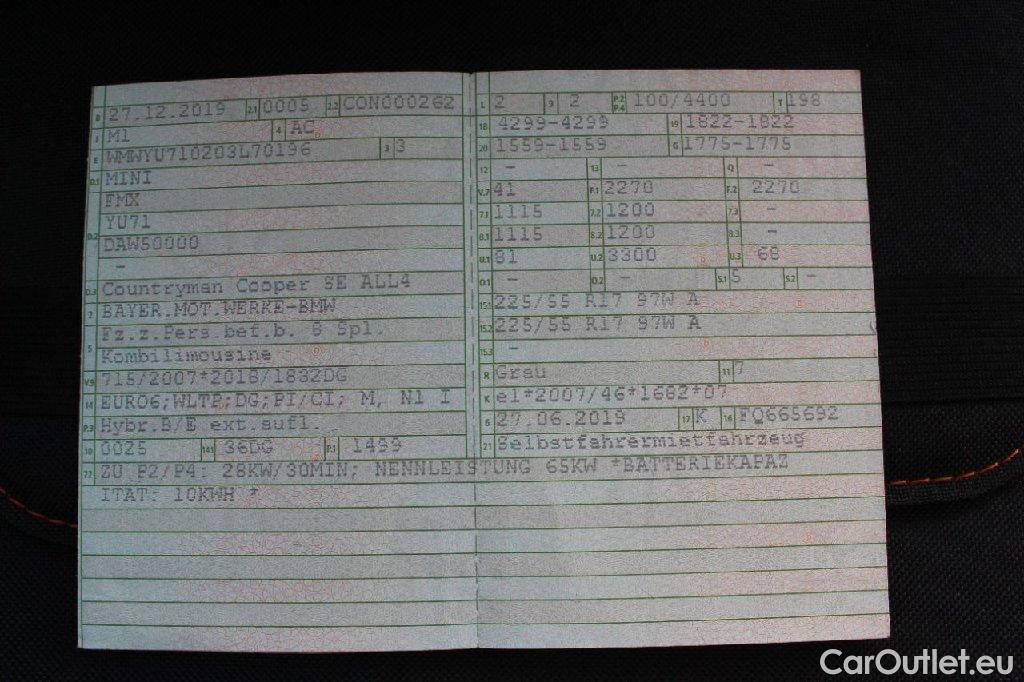 B 27.12.2019 2.1 0005 2.2 CON000262
J M1 4 AC
E WMWYU710203L70196 3 3
D.1 MINI
FMX
YU71
D.2 DAW50000
-
D.3 Countryman Cooper SE ALL4
2 BAYER.MOT.WERKE-BMW
Fz.z.Pers.bef.b. 8 Spl.
5 Kombilimousine
V.9 715/2007*2018/1832DG
14 EURO6;WLTP;DG;PI/CI; M, N1 I
P.3 Hybr.B/E ext.aufl.
10 0025 14.1 36DG P.1 1499
L 2 9 2 P.2 P.4 100/4400 T 198
18 4299-4299 19 1822-1822
20 1559-1559 G 1775-1775
12 - 13 - Q -
V.7 41 F.1 2270 F.2 2270
7.1 1115 7.2 1200 7.3 -
8.1 1115 8.2 1200 8.3 -
U.1 81 U.2 3300 U.3 68
O.1 - O.2 - S.1 5 S.2 -
15.1 225/55 R17 97W A
15.2 225/55 R17 97W A
15.3 -
R Grau 11 7
K e1*2007/46*1682*07
6 27.06.2019 17 K 16 FQ665692
21 Selbstfahrermietfahrzeug
22 ZU P2/P4: 28KW/30MIN; NENNLEISTUNG 65KW *BATTERIEKAPAZ
ITÄT: 10KWH *
CarOutlet.eu